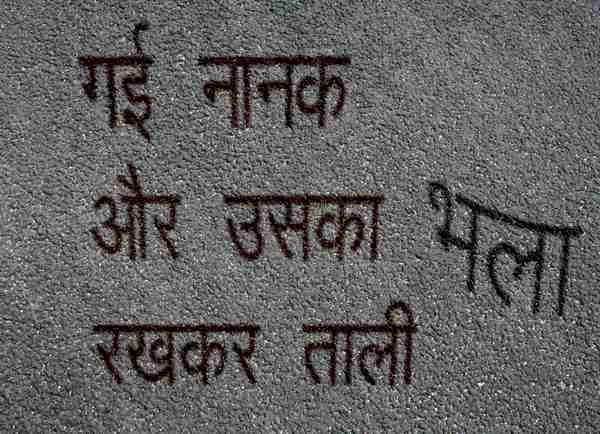 गई नानक
और उसका भला
रखकर ताली